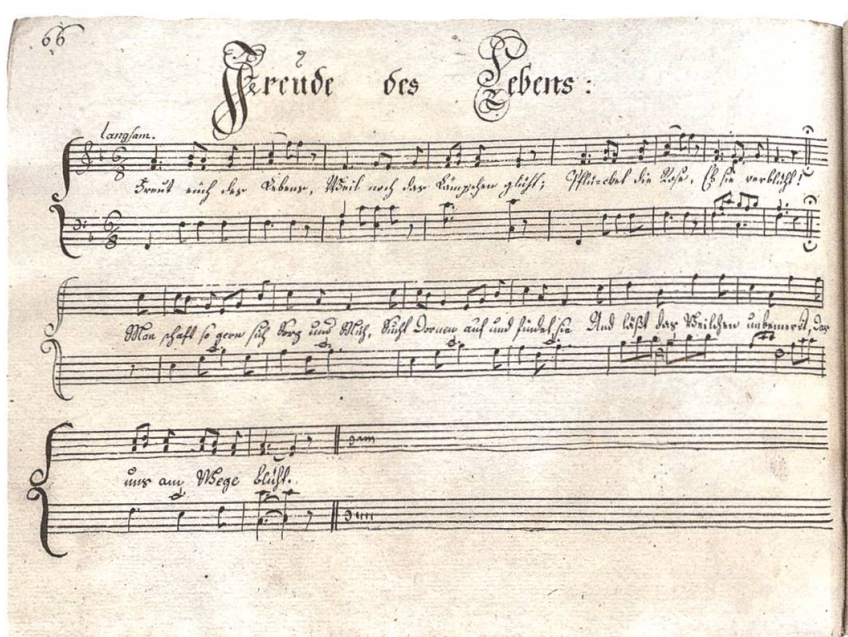 66
Freude des Lebens:
langsam.
Freut euch des Lebens, Weil noch das Lämpchen glüht; Pflücket die Rose, Eh sie verblüht!
Man schaft so gern sich Sorg und Müh, Sucht Dornen auf und findet sie Und läßt das Veilchen unbemerkt, das
uns am Wege blüht.